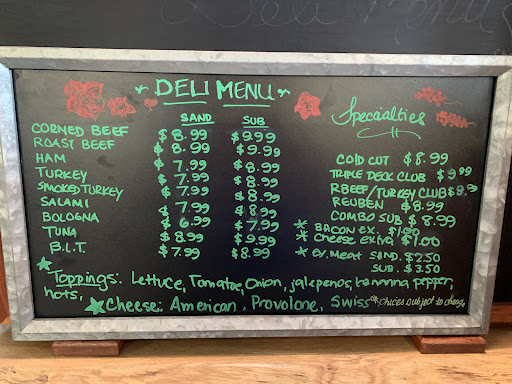 Deli Menu
DELI MENU
SAND SUB
CORNED BEEF $8.99 $9.99
ROAST BEEF $8.99 $9.99
HAM $7.99 $8.99
TURKEY $7.99 $8.99
SMOKED TURKEY $7.99 $8.99
SALAMI $7.99 $8.99
BOLOGNA $6.99 $7.99
TUNA $8.99 $9.99
B.L.T. $7.99 $8.99
Specialties
COLD CUT $8.99
TRIPLE DECK CLUB $9.99
RBEEF/TURKEY CLUB $9.99
REUBEN $8.99
COMBO SUB $8.99
* BACON EX. $1.50
* Cheese extra $1.00
* EX. Meat SAND. $2.50
SUB. $3.50
Toppings: Lettuce, Tomatoe, Onion, jalepenos, banana pepper,
hots,
Cheese: American, Provolone, Swiss prices subject to change